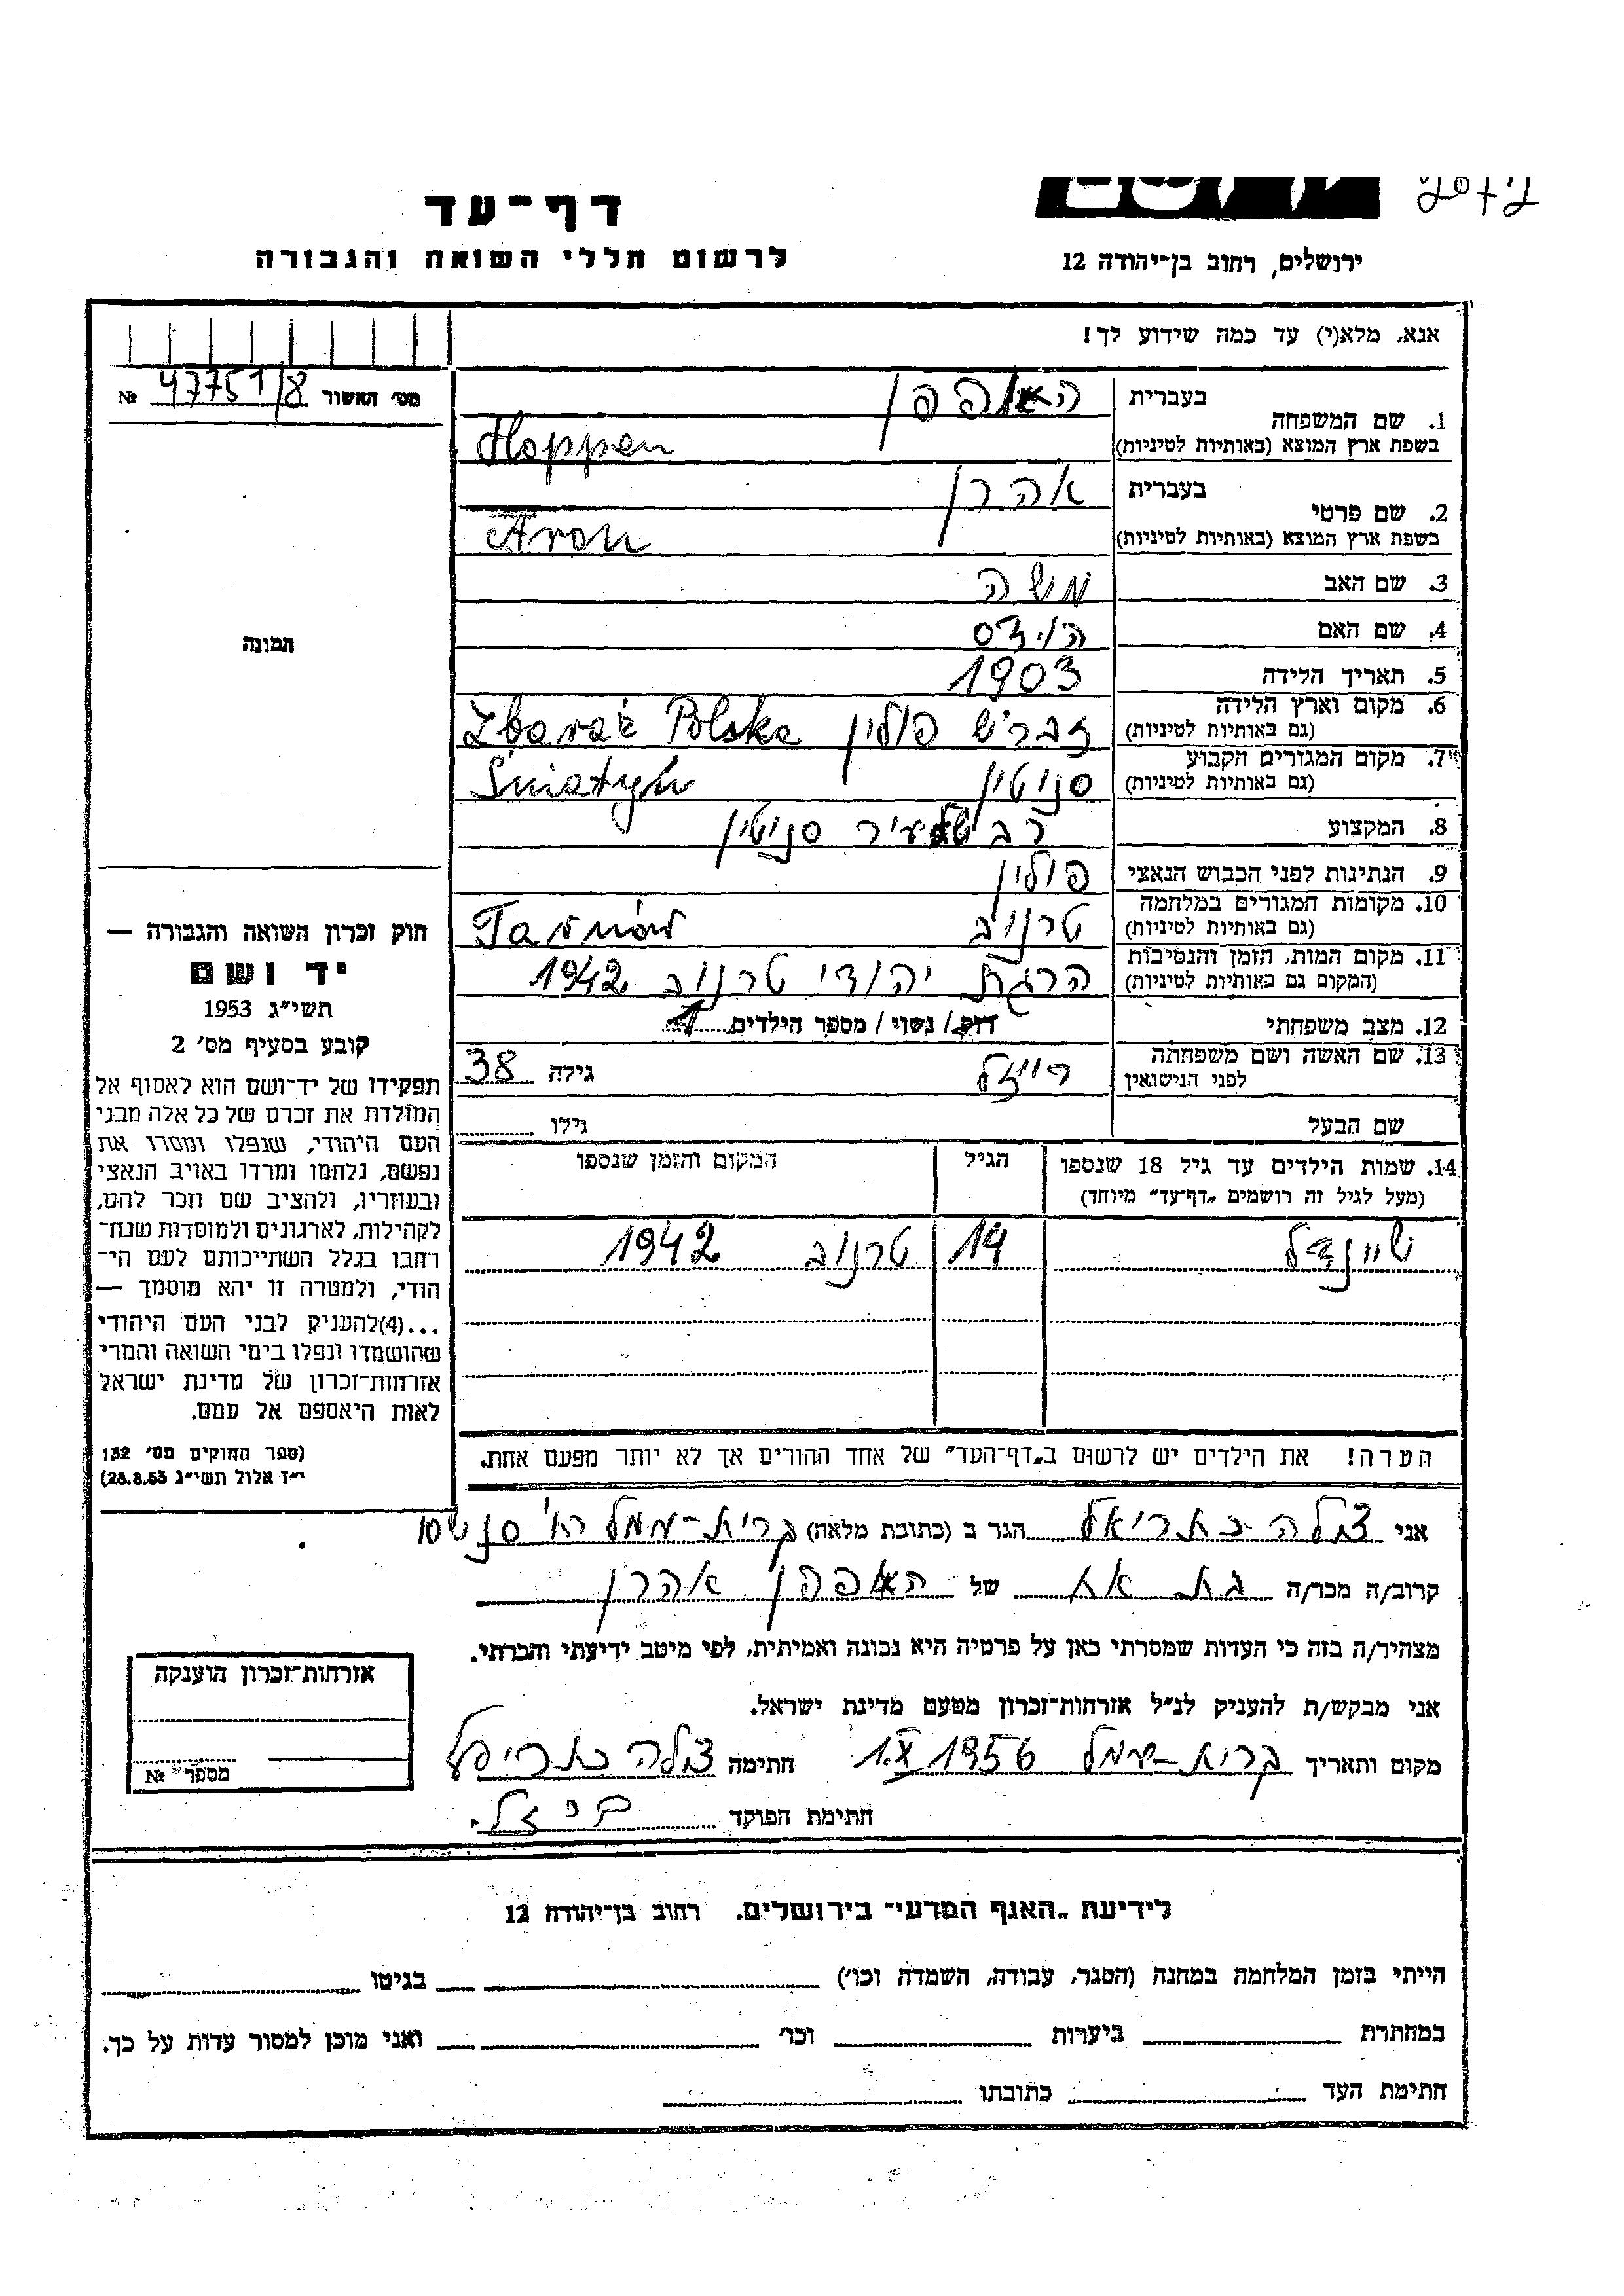 דף־עד
לרשום חללי השואה והגבורה
ירושלים, רחוב בן־יהודה 12
אנא, מלא(י) עד כמה שידוע לך!
מס׳ האשור 47751/8 №
1. שם המשפחה
בעברית האפפן
בשפת ארץ המוצא (באותיות לטיניות) Hoppen
2. שם פרטי
בעברית אהרן
בשפת ארץ המוצא (באותיות לטיניות) Aron
3. שם האב משה
4. שם האם הינדה
5. תאריך הלידה 1903
6. מקום וארץ הלידה
(גם באותיות לטיניות) זברש פולין Zbaraż Polska
7. מקום המגורים הקבוע
(גם באותיות לטיניות) סניטין Śniatyń
8. המקצוע רב סניטין
9. הנתינות לפני הכבוש הנאצי פולין
10. מקומות המגורים במלחמה
(גם באותיות לטיניות) טרנוב Tarnów
11. מקום המות, הזמן והנסיבות
(המקום גם באותיות לטיניות) הרגת יהודי טרנוב 1942
12. מצב משפחתי רוק / נשוי / מספר הילדים 1
13. שם האשה ושם משפחתה
לפני הנישואין רייזל גילה 38
שם הבעל גילו
14. שמות הילדים עד גיל 18 שנספו הגיל המקום והזמן שנספו
(מעל לגיל זה רושמים „דף־עד״ מיוחד)
שיינדל 14 טרנוב 1942
הערה! את הילדים יש לרשום ב„דף־העד״ של אחד ההורים אך לא יותר מפעם אחת.
תמונה
חוק זכרון השואה והגבורה —
יד ושם
תשי״ג 1953
קובע בסעיף מס׳ 2
תפקידו של יד־ושם הוא לאסוף אל
המולדת את זכרם של כל אלה מבני
העם היהודי, שנפלו ומסרו את
נפשם, נלחמו ומרדו באויב הנאצי
ובעוזריו, ולהציב שם וזכר להם,
לקהילות, לארגונים ולמוסדות שנח־
רבו בגלל השתייכותם לעם הי־
הודי, ולמטרה זו יהא מוסמך —
...(4)להעניק לבני העם היהודי
שהושמדו ונפלו בימי השואה והמרי
אזרחות־זכרון של מדינת ישראל
לאות היאספם אל עמם.
(ספר החוקים מס׳ 132
י״ד אלול תשי״ג 28.8.53)
אני צילה כאריאל הגר ב (כתובת מלאה) קרית־עמל
קרוב/ה מכר/ה בת אח של האפפן אהרן
מצהיר/ה בזה כי העדות שמסרתי כאן על פרטיה היא נכונה ואמיתית, לפי מיטב ידיעתי והכרתי.
אני מבקש/ת להעניק לנ״ל אזרחות־זכרון מטעם מדינת ישראל.
מקום ותאריך קרית־עמל 1.X 1956 חתימה צילה
חתימת הפוקד
אזרחות־זכרון הוענקה
מספר №
לידיעת „האגף המדעי״ בירושלים. רחוב בן־יהודה 12
הייתי בזמן המלחמה במחנה (הסגר, עבודה, השמדה וכו׳) בגיטו
במחתרת ביערות וכו׳ ואני מוכן למסור עדות על כך.
חתימת העד כתובתו